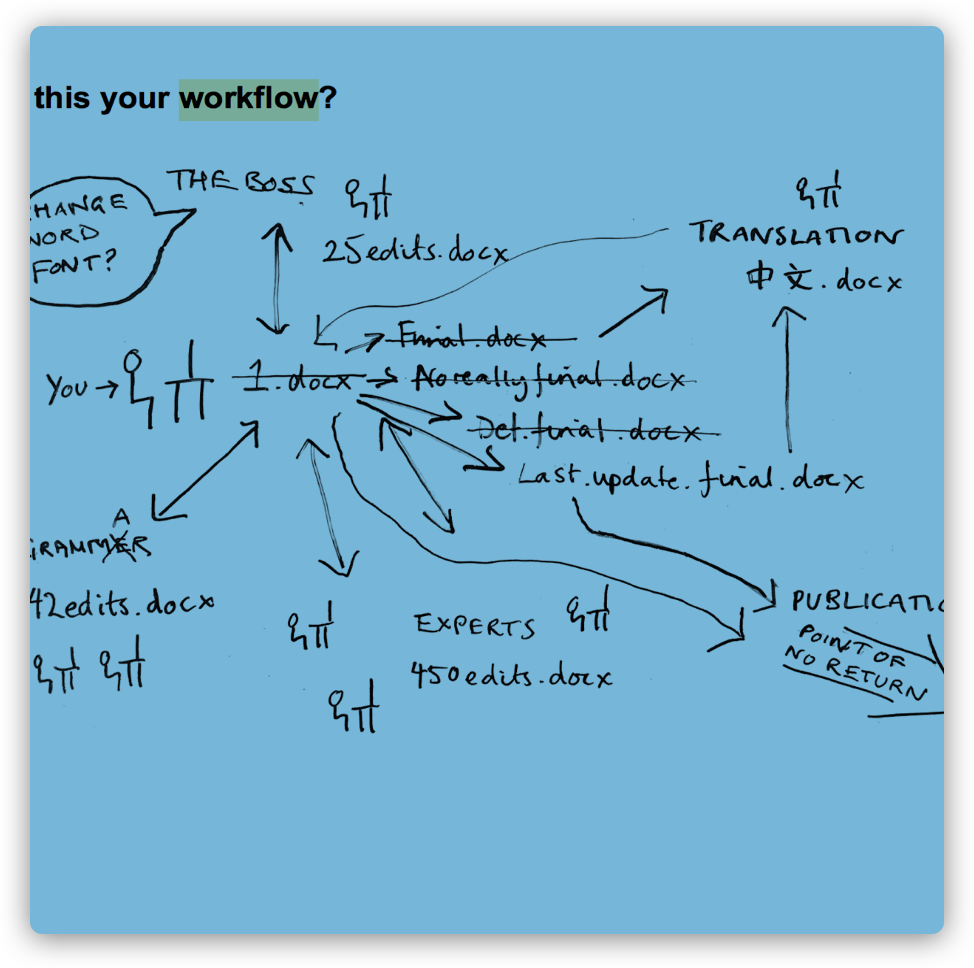 this your workflow?
THE BOSS
HANGE
WORD
FONT?
25edits.docx
TRANSLATION
中文.docx
Final.docx
You → 1.docx
No really final.docx
Det.final.docx
Last.update.final.docx
A
GRAMMER
42edits.docx
EXPERTS
450edits.docx
PUBLICATIO
POINT OF
NO RETURN